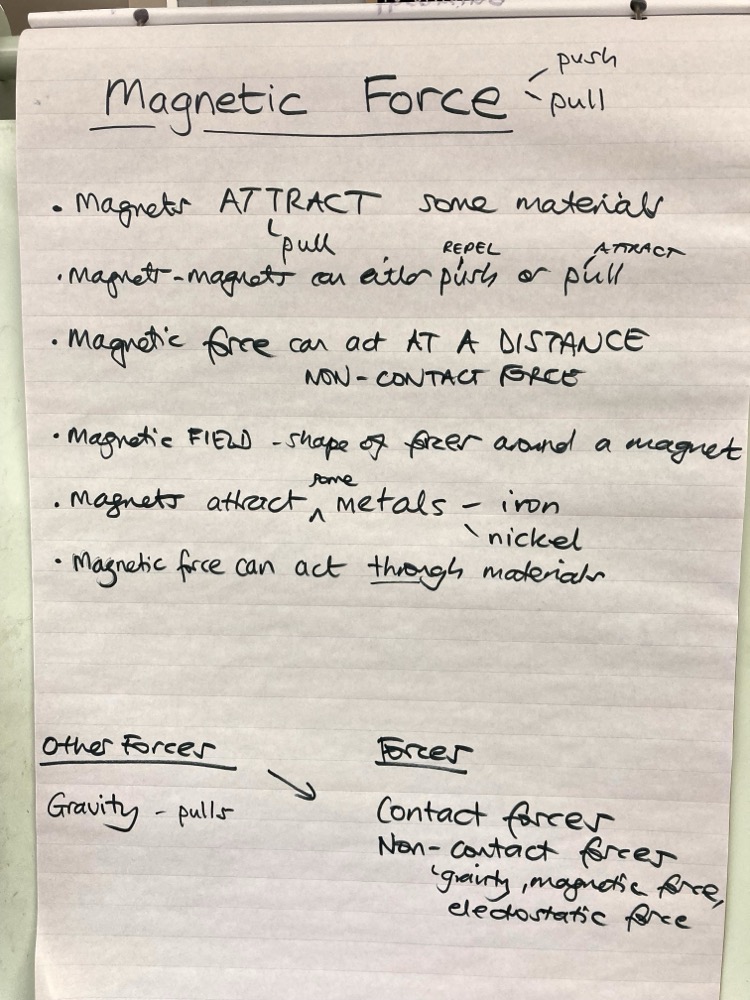 push
Magnetic Force
pull
• Magnets ATTRACT some materials
pull
REPEL ATTRACT
• Magnets-magnets can either push or pull
• Magnetic force can act AT A DISTANCE
NON-CONTACT FORCE
• Magnetic FIELD - shape of forces around a magnet
some
• Magnets attract ^ metals - iron
nickel
• Magnetic force can act through materials
Other Forces
Gravity - pulls
Forces
Contact forces
Non-contact forces
gravity, magnetic force,
electostatic force